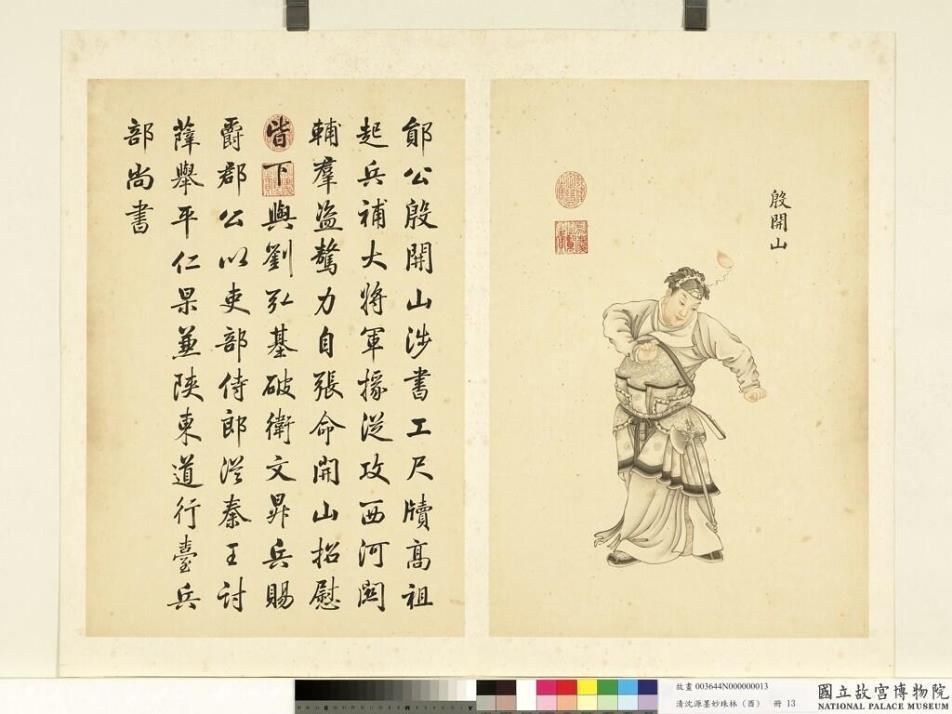 殷開山
鄖公殷開山涉書工尺牘高祖
起兵補大將軍掾從攻西河關
輔羣盜驁力自張命開山招慰
皆下與劉弘基破衛文昇兵賜
爵郡公以吏部侍郎從秦王討
薛舉平仁杲兼陝東道行臺兵
部尚書
故畫 003644N000000013
清沈源墨妙珠林（酉） 冊 13
國立故宮博物院
NATIONAL PALACE MUSEUM